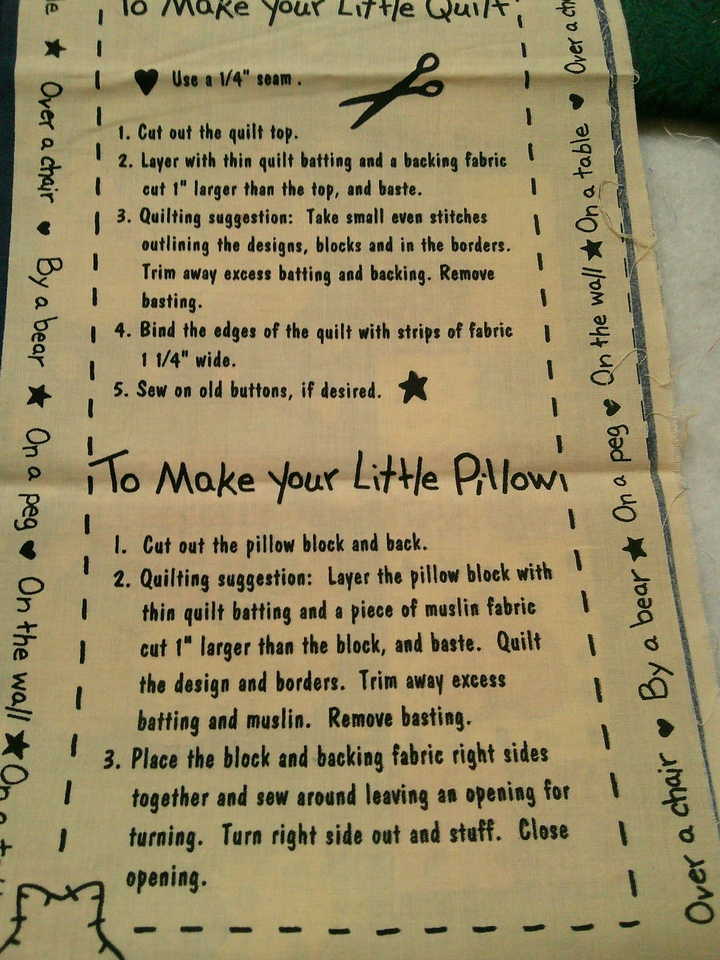 To Make Your Little Quilt
Use a 1/4" seam.
1. Cut out the quilt top.
2. Layer with thin quilt batting and a backing fabric
cut 1" larger than the top, and baste.
3. Quilting suggestion: Take small even stitches
outlining the designs, blocks and in the borders.
Trim away excess batting and backing. Remove
basting.
4. Bind the edges of the quilt with strips of fabric
1 1/4" wide.
5. Sew on old buttons, if desired.
To Make Your Little Pillow
1. Cut out the pillow block and back.
2. Quilting suggestion: Layer the pillow block with
thin quilt batting and a piece of muslin fabric
cut 1" larger than the block, and baste. Quilt
the design and borders. Trim away excess
batting and muslin. Remove basting.
3. Place the block and backing fabric right sides
together and sew around leaving an opening for
turning. Turn right side out and stuff. Close
opening.
Over a chair ♥ By a bear ★ On a peg ♥ On the wall ★ On a
Over a chair ♥ By a bear ★ On a peg ♥ On the wall ★ On a table ♥ Over a